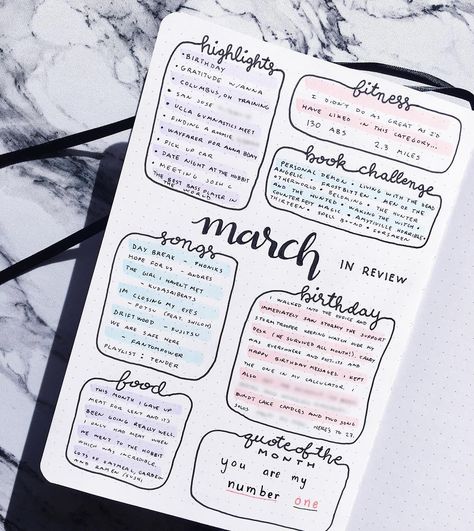 highlights
• BIRTHDAY
• GRATITUDE W/ANNA
• COLUMBUS, OH TRAINING
• SAN JOSE
• UCLA GYMNASTICS MEET
• FINDING A ROOMIE
• WAYFARER FOR ALMA BDAY
• PICK UP CAR
• DATE NIGHT AT THE HOBBIT
• MEETING JOSH C
THE BEST BASS PLAYER IN
THE WORLD
fitness
I DIDN'T DO AS GREAT AS I'D
HAVE LIKED IN THIS CATEGORY...
130 ABS 2.3 MILES
book challenge
PERSONAL DEMON • LIVING WITH THE DEAD
ANGELIC • FROSTBITTEN • MEN OF THE
OTHERWORLD • BELONGING • THE HUNTER
AND THE HUNTED • WAKING THE WITCH
COUNTERFEIT MAGIC • AMITYVILLE HORRIBLE
THIRTEEN • SPELL BOUND • FORSAKEN
march
IN REVIEW
songs
DAY BREAK - PHONIKS
HOPE FOR US - ANDRES
THE GIRL I HAVEN'T MET
- KUDASAIBEATS
IM CLOSING MY EYES
- POTSU (FEAT. SHILOH)
DRIFTWOOD - FUJITSU
WE ARE SAFE HERE
- FANTOMPOWER
PLAYLIST: TENDER
birthday
I WALKED INTO THE OFFICE AND
IMMEDIATELY SAW STARKY THE SUPPORT
STORMTROOPER KEEPING WATCH OVER MY
DESK (HE SURVIVED ALL MONTH!). CANDY
WAS EVERYWHERE AND POSTITS AND
HAPPY BIRTHDAY MESSAGES. I KEPT
THE ONE IN MY CALCULATOR. I
ALSO
BUNDT CAKE CANDLES AND TWO SONG
SOLOS HERES TO 27.
food
THIS MONTH I GAVE UP
MEAT FOR LENT AND IT'S
BEEN GOING REALLY WELL.
I ONLY HAD MEAT WHEN
WE WENT TO THE HOBBIT
WHICH WAS INCREDIBLE.
LOTS OF OATMEAL, GARDEIN
AND RAMEN/SUSHI
quote of the
MONTH
you are my
number one